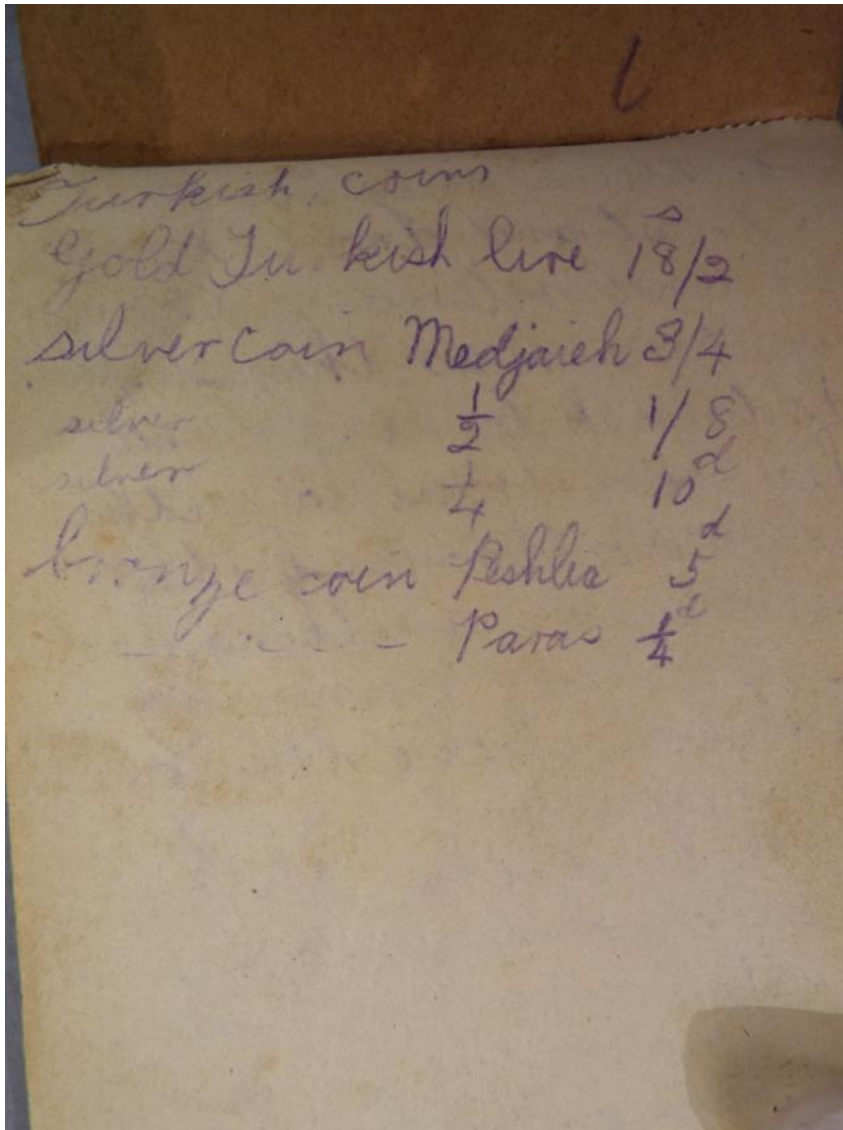 Turkish coins
s
Gold Tu kish lire 18/2
silver coin Medjaieh 3/4
silver 1/2 1/8
silver 1/4 10d
bronze coin Peshlia 5d
- - Paras 1/4d